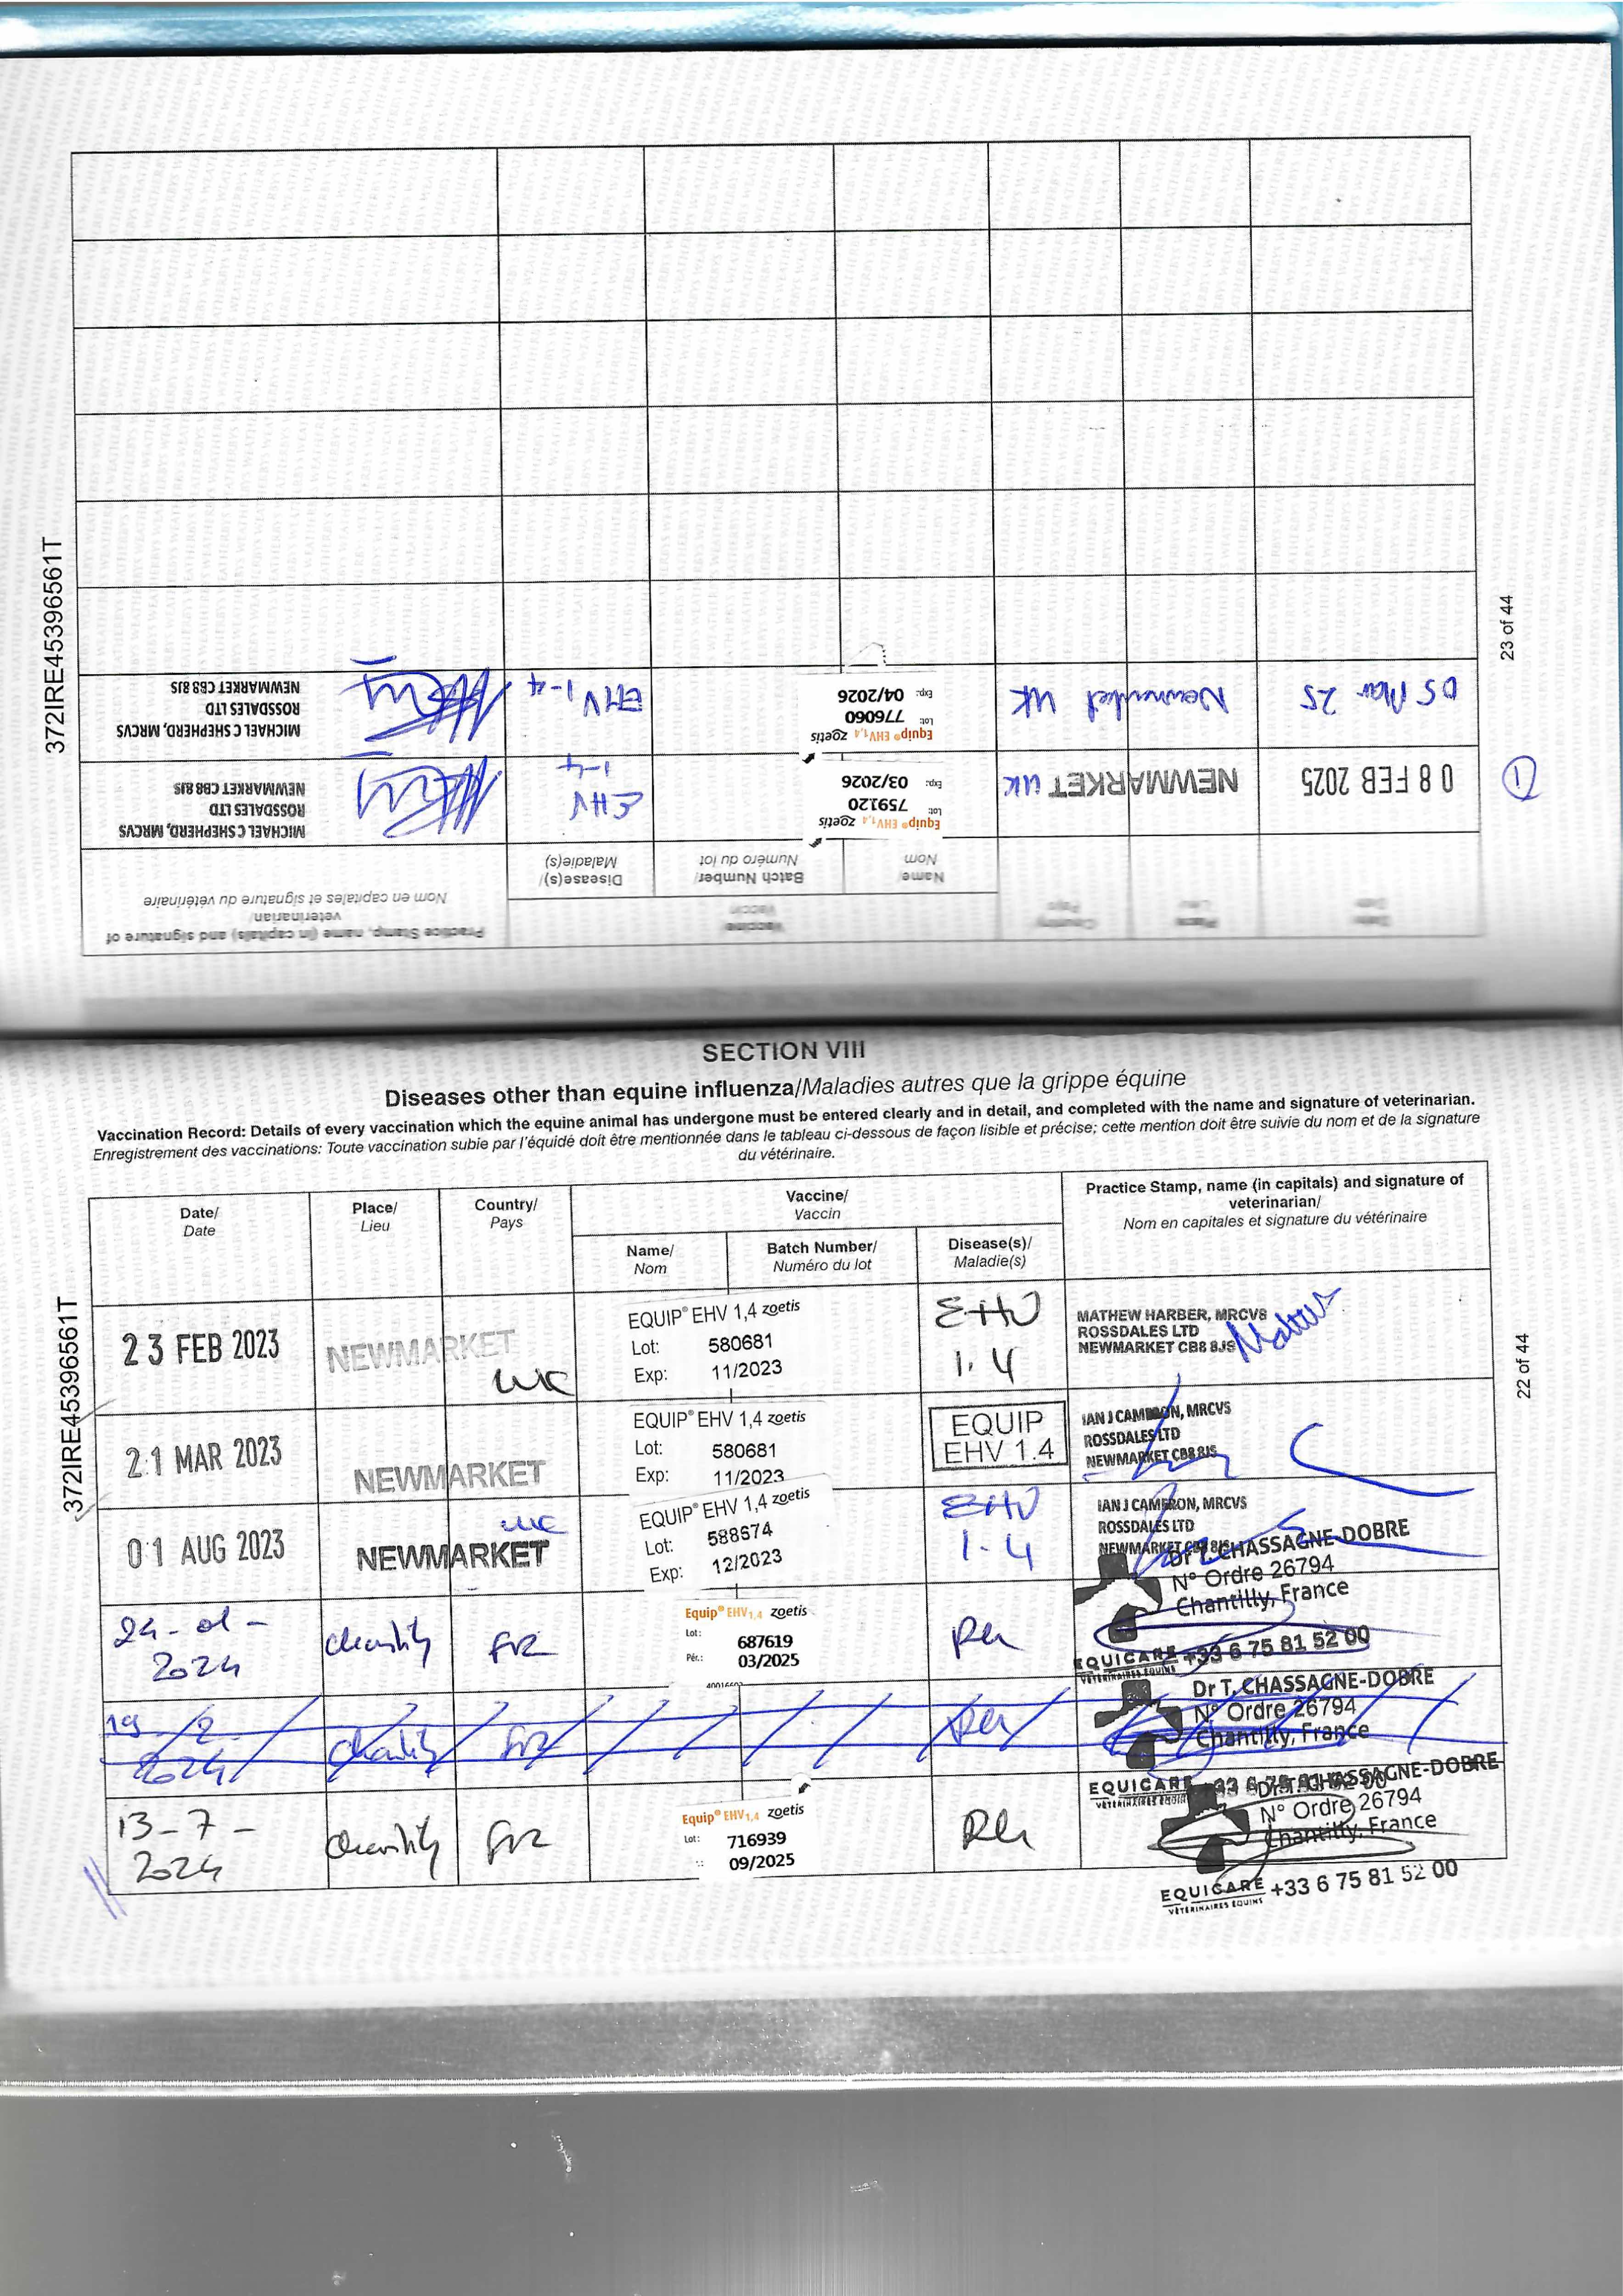 372IRE45396561T
23 of 44
Date/
Date
Place/
Lieu
Country/
Pays
Vaccine/
Vaccin
Practice Stamp, name (in capitals) and signature of
veterinarian/
Nom en capitales et signature du vétérinaire
Name/
Nom
Batch Number/
Numéro du lot
Disease(s)/
Maladie(s)
①
08 FEB 2025
NEWMARKET UK
Equip® EHV1,4 zoetis
Lot: 759120
Exp: 03/2026
EHV
1-4
MICHAEL C SHEPHERD, MRCVS
ROSSDALES LTD
NEWMARKET CB8 8JS
05 Mar 25
Newmarket UK
Equip® EHV1,4 zoetis
Lot: 776060
Exp: 04/2026
EHV 1-4
MICHAEL C SHEPHERD, MRCVS
ROSSDALES LTD
NEWMARKET CB8 8JS
SECTION VIII
Diseases other than equine influenza/Maladies autres que la grippe équine
Vaccination Record: Details of every vaccination which the equine animal has undergone must be entered clearly and in detail, and completed with the name and signature of veterinarian.
Enregistrement des vaccinations: Toute vaccination subie par l'équidé doit être mentionnée dans le tableau ci-dessous de façon lisible et précise; cette mention doit être suivie du nom et de la signature
du vétérinaire.
372IRE45396561T
22 of 44
Date/
Date
Place/
Lieu
Country/
Pays
Vaccine/
Vaccin
Practice Stamp, name (in capitals) and signature of
veterinarian/
Nom en capitales et signature du vétérinaire
Name/
Nom
Batch Number/
Numéro du lot
Disease(s)/
Maladie(s)
23 FEB 2023
NEWMARKET
UK
EQUIP® EHV 1,4 zoetis
Lot: 580681
Exp: 11/2023
EHV
1.4
MATHEW HARBER, MRCVS
ROSSDALES LTD
NEWMARKET CB8 8JS
21 MAR 2023
NEWMARKET
EQUIP® EHV 1,4 zoetis
Lot: 580681
Exp: 11/2023
EQUIP
EHV 1.4
IAN J CAMERON, MRCVS
ROSSDALES LTD
NEWMARKET CB8 8JS
01 AUG 2023
UK
NEWMARKET
EQUIP® EHV 1,4 zoetis
Lot: 588674
Exp: 12/2023
EHV
1.4
IAN J CAMERON, MRCVS
ROSSDALES LTD
NEWMARKET CB8 8JS
24-01-
2024
Chantilly
FR
Equip® EHV1,4 zoetis
Lot: 687619
Pér.: 03/2025
Dr T. CHASSAGNE-DOBRE
N° Ordre 26794
Chantilly, France
EQUICARE +33 6 75 81 52 00
VÉTÉRINAIRES ÉQUINS
19/2
2024
Chantilly
FR
Dr T. CHASSAGNE-DOBRE
N° Ordre 26794
Chantilly, France
EQUICARE +33 6 75 81 52 00
VÉTÉRINAIRES ÉQUINS
13-7-
2024
Chantilly
FR
Equip® EHV1,4 zoetis
Lot: 716939
09/2025
Dr T. CHASSAGNE-DOBRE
N° Ordre 26794
Chantilly, France
EQUICARE +33 6 75 81 52 00
VÉTÉRINAIRES ÉQUINS